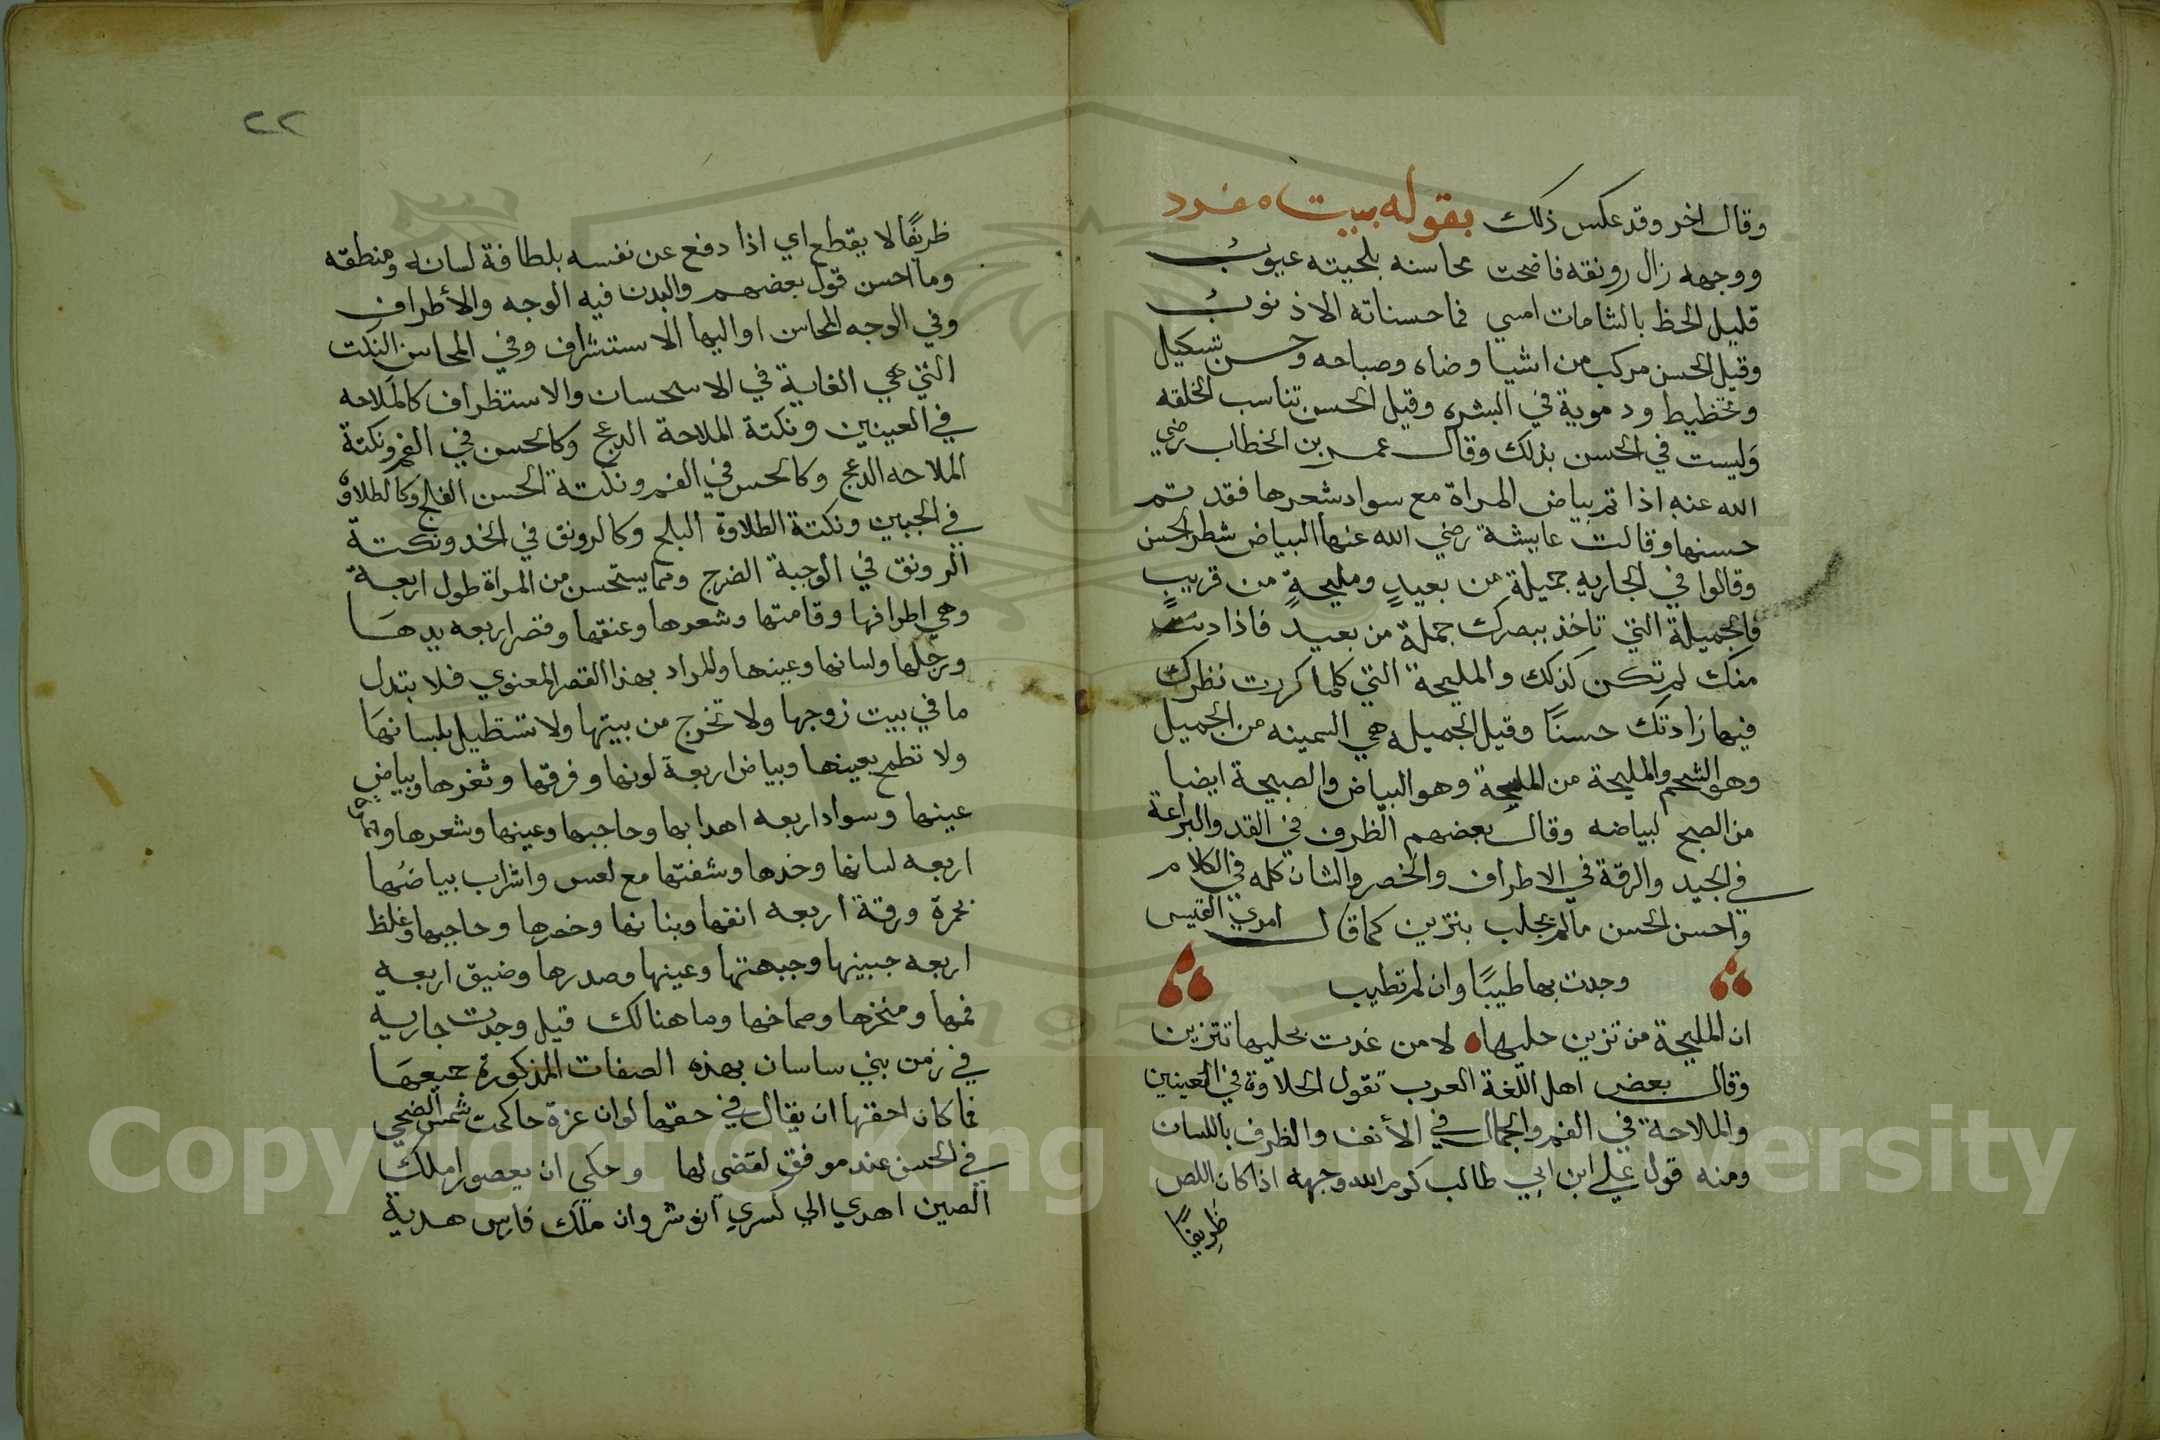 وقال اخر وقد عكس ذلك بقوله بيت مفرد
ووجهه زال رونقه فاضحت محاسنه بلحيته عيوب
قليل الحظ بالشامات امسي فما حسناته الا ذنوب
وقيل الحسن مركب من اشيا وضاه وصباحه وحسن تشكيل
وتخطيط ودموية في البشره وقيل الحسن تناسب الخلقه
وليست في الحسن بذلك وقال عمر بن الخطاب رضي
الله عنه اذا تم بياض المراة مع سواد شعرها فقد تم
حسنها وقالت عايشة رضي الله عنها البياض شطر الحسن
وقالوا في الجاريه جميلة من بعيدٍ ومليحةٍ من قريبٍ
فالجميلة التي تاخذ ببصرك جملة من بعيد فاذا دنت
منك لم تكن كذلك والمليحة التي كلما كررت نظرك
فيها زادتك حسنًا وقيل الجميله هي السمينه من الجميل
وهو الشحم والمليحة من المليحة وهو البياض والصبيحة ايضا
من الصبح لبياضه وقال بعضهم الظرف في القد والبراعة
في الجيد والرقة في الاطراف والخصر والشان كله في الكلام
واحسن الحسن مالم يجلب بتزين كما قال امري القيس
وجدت بها طيبًا وان لم تطيب
ان المليحة من تزين حليها لا من غدت بحليها تتزين
وقال بعض اهل اللغة العرب تقول الحلاوة في العينين
والملاحة في الفم والجمال في الأنف والظرف باللسان
ومنه قول علي ابن ابي طالب كرم الله وجهه اذا كان اللص
ظريفًا
٢٢
ظريفًا لا يقطع اي اذا دفع عن نفسه بلطافة لسانه ومنطقه
وما احسن قول بعضهم والبدن فيه الوجه والأطراف
وفي الوجه المحاسن او اليها الاستشراف وفي المحاسن النكت
التي هي الغاية في الاسحسان والاستظراف كالملاحه
في العينين ونكتة الملاحة الدعج وكالحسن في الفم ونكتة
الملاحه الدعج وكالحسن في الفم ونكتة الحسن الفلج وكالطلاوة
في الجبين ونكتة الطلاوة البلج وكالرونق في الخد ونكتة
الرونق في الوجبة الضرج ومما يستحسن من المراة طول اربعة
وهي اطرافها وقامتها وشعرها وعنقها وقصر اربعه يدها
ورجلها ولسانها وعينها والمراد بهذا القصر المعنوي فلا تبذل
ما في بيت زوجها ولا تخرج من بيتها ولا تستطيل بلسانها
ولا تطمح بعينها وبياض اربعة لونها وفرقها وثغرها وبياض
عينها وسواد اربعه اهدابها وحاجبها وعينها وشعرها
اربعه لسانها وخدها وشفتها مع لعس واشراب بياضها
بحمرة ورقة اربعه انفها وبنانها وخصرها وحاجبها وغلظ
اربعه جبينها وجبهتها وعينها وصدرها وضيق اربعه
فمها ومنخرها وصماخها وما هنالك قيل وجدت جارية
في زمن بني ساسان بهذه الصفات المذكورة جميعها
فما كان احقها ان يقال في حقها لوان عزة حاكمت شمس الضحي
في الحسن عند موفق لقضي لها وحكي ان يعصور ملك
الصين اهدي الي كسري انوشروان ملك فارس هدية
Copyright © King Saud University
1957